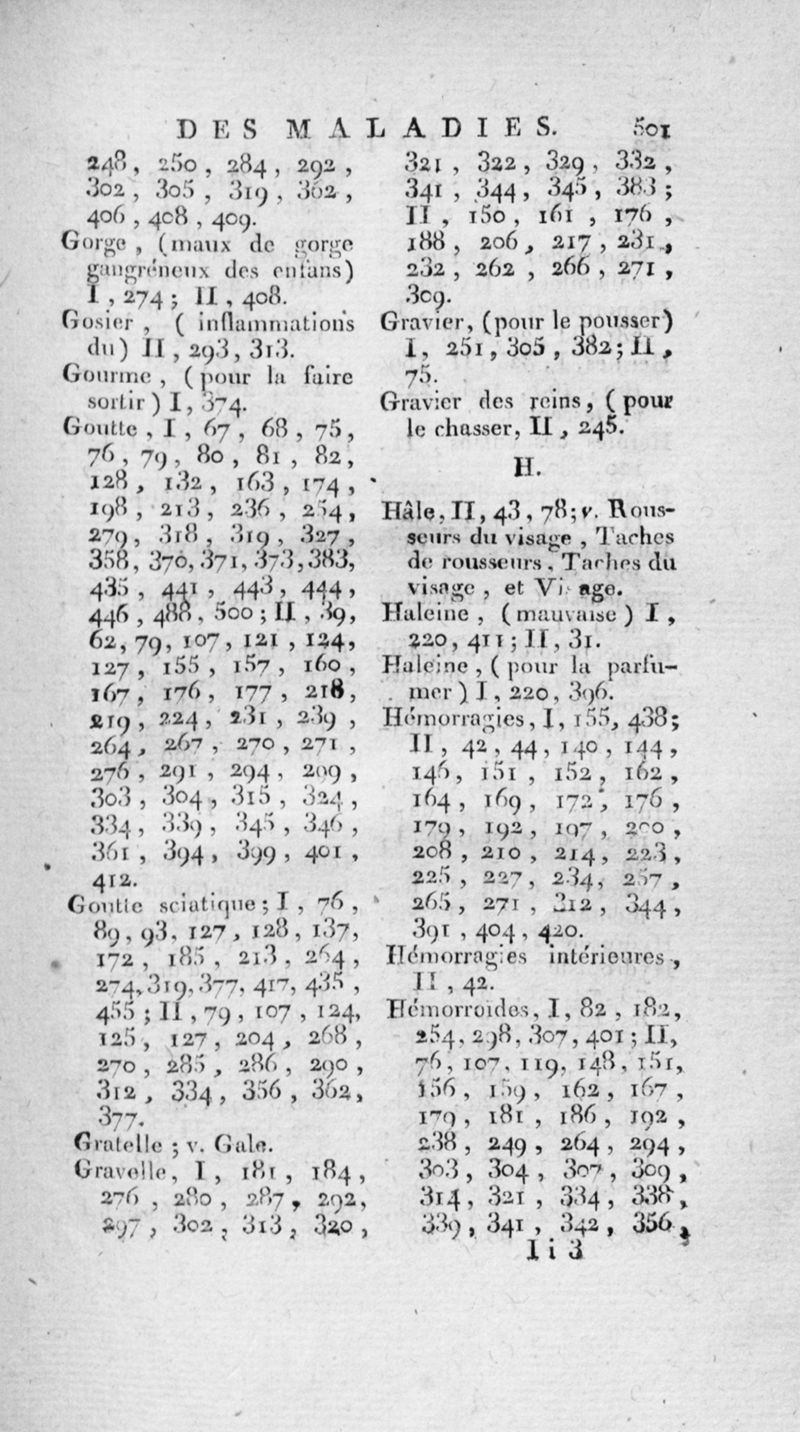 DES MALADIES. 501
248, 250, 284, 292,
302, 305, 319, 362,
406, 408, 409.
Gorge, (maux de gorge
gangréneux des enfans)
I, 274; II, 408.
Gosier, (inflammations
du) II, 293, 313.
Gourme, (pour la faire
sortir) I, 374.
Goutte, I, 67, 68, 75,
76, 79, 80, 81, 82,
128, 132, 163, 174,
198, 213, 236, 254,
279, 318, 319, 327,
358, 370, 371, 373, 383,
435, 441, 443, 444,
446, 488, 500; II, 39,
62, 79, 107, 121, 124,
127, 155, 157, 160,
167, 176, 177, 218,
219, 224, 231, 239,
264, 267, 270, 271,
276, 291, 294, 299,
303, 304, 315, 324,
334, 339, 345, 346,
361, 394, 399, 401,
412.
Goutte sciatique; I, 76,
89, 93, 127, 128, 137,
172, 185, 213, 264,
274, 319, 377, 417, 435,
455; II, 79, 107, 124,
125, 127, 204, 268,
270, 285, 286, 290,
312, 334, 356, 362,
377.
Gratelle; v. Gale.
Gravelle, I, 181, 184,
276, 280, 287, 292,
297, 302, 313, 320,
321, 322, 329, 332,
341, 344, 345, 383;
II, 150, 161, 176,
188, 206, 217, 231,
232, 262, 266, 271,
309.
Gravier, (pour le pousser)
I, 251, 305, 382; II,
75.
Gravier des reins, (pour
le chasser, II, 245.
H.
Hâle, II, 43, 78; v. Rous-
seurs du visage, Taches
de rousseurs, Taches du
visage, et Visage.
Haleine, (mauvaise) I,
220, 411; II, 31.
Haleine, (pour la parfu-
mer) I, 220, 396.
Hémorragies, I, 155, 438;
II, 42, 44, 140, 144,
146, 151, 152, 162,
164, 169, 172, 176,
179, 192, 197, 200,
208, 210, 214, 223,
225, 227, 234, 257,
265, 271, 312, 344,
391, 404, 420.
Hémorragies intérieures,
II, 42.
Hémorroïdes, I, 82, 182,
254, 298, 307, 401; II,
76, 107, 119, 148, 151,
156, 159, 162, 167,
179, 181, 186, 192,
238, 249, 264, 294,
303, 304, 307, 309,
314, 321, 334, 338,
339, 341, 342, 356,
I i 3